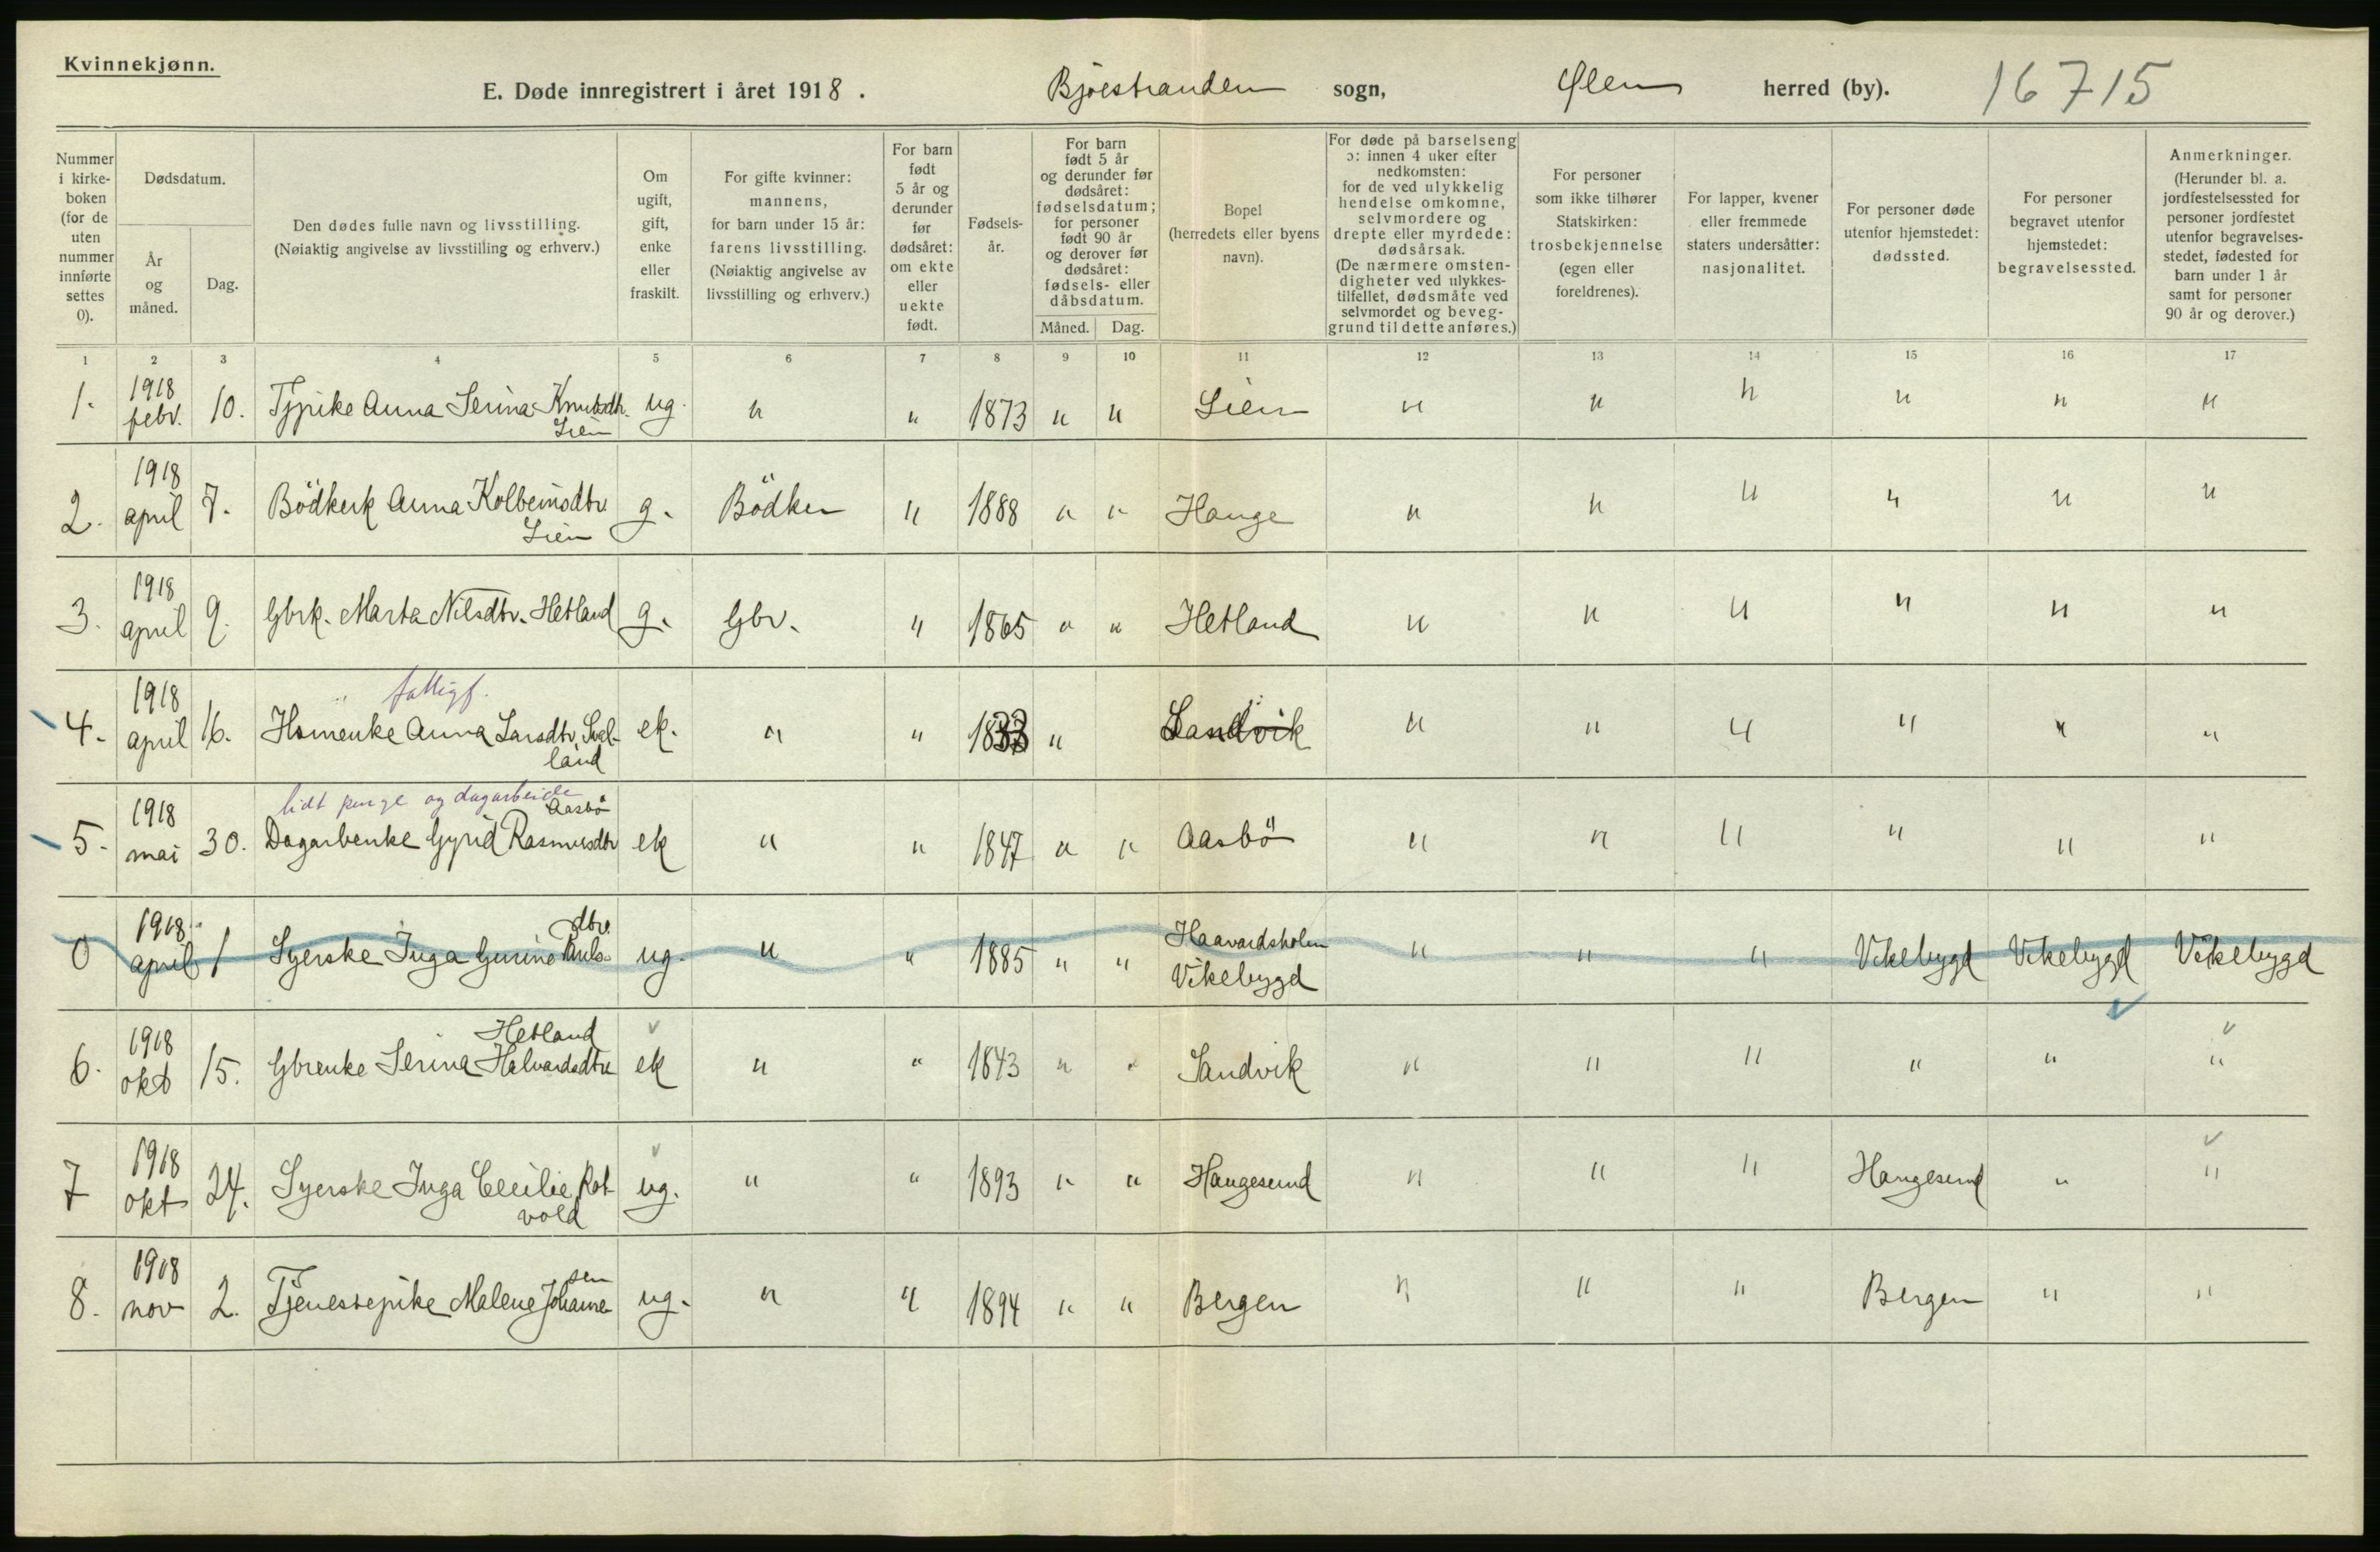 Kvinnekjønn.
E. Døde innregistrert i året 1918. Bjoestranden sogn, Ølen herred (by). 16715
Nummer i kirkeboken (for de uten nummer innførte settes 0).
Dødsdatum.
År og måned.
Dag.
Den dødes fulle navn og livsstilling.
(Nøiaktig angivelse av livsstilling og erhverv.)
Om ugift, gift, enke eller fraskilt.
For gifte kvinner: mannens, for barn under 15 år: farens livsstilling. (Nøiaktig angivelse av livsstilling og erhverv.)
For barn født 5 år og derunder før dødsåret: om ekte eller uekte født.
Fødsels-år.
For barn født 5 år og derunder før dødsåret: fødselsdatum; for personer født 90 år og derover før dødsåret: fødsels- eller dåbsdatum.
Måned. Dag.
Bopel (herredets eller byens navn).
For døde på barselseng ɔ: innen 4 uker efter nedkomsten: for de ved ulykkelig hendelse omkomne, selvmordere og drepte eller myrdede: dødsårsak. (De nærmere omsten-digheter ved ulykkes-tilfellet, dødsmåte ved selvmordet og beveg-grund til dette anføres.)
For personer som ikke tilhører Statskirken: trosbekjennelse (egen eller foreldrenes).
For lapper, kvener eller fremmede staters undersåtter: nasjonalitet.
For personer døde utenfor hjemstedet: dødssted.
For personer begravet utenfor hjemstedet: begravelsessted.
Anmerkninger. (Herunder bl. a. jordfestelsessted for personer jordfestet utenfor begravelses-stedet, fødested for barn under 1 år samt for personer 90 år og derover.)
1 2 3 4 5 6 7 8 9 10 11 12 13 14 15 16 17
1. 1918 febr. 10. Tjpike Anna Serina Knutsdtr. Lien ug. " " 1873 " " Lien " " " " " "
2. 1918 april 7. Bödkerk Anna Kolbeinsdtr. Lien g. Bödker " 1888 " " Hauge " " " " " "
3. 1918 april 9. Gbrk. Marta Nilsdtr. Hetland g. Gbr. " 1865 " " Hetland " " " " " "
fattigf.
4. 1918 april 16. Hsmenke Anna Larsdtr. ek. " " 1833 " Sandvik " " " " " "
lidt penge og dagarbeide
5. 1918 mai 30. Dagarbenke Gyrid Rasmusdtr Aasbö ek " " 1847 " " Aasbö " " " " " "
0 1918 april 1 Syerske Inga Gurine dtr. ug. " " 1885 " " Haavardsholm Vikebygd " " " Vikebygd Vikebygd Vikebygd
6. 1918 okt 15. Gbrenke Serina Halvardsdtr Hetland ek " " 1843 " " Sandvik " " " " " "
7 1918 okt 24. Syerske Inga Cecilie Rotvold ug. " " 1893 " " Haugesund " " " Haugesund " "
8. 1918 nov 2. Tjenestepike Malene Johannesen ug. " " 1894 " " Bergen " " " Bergen " "